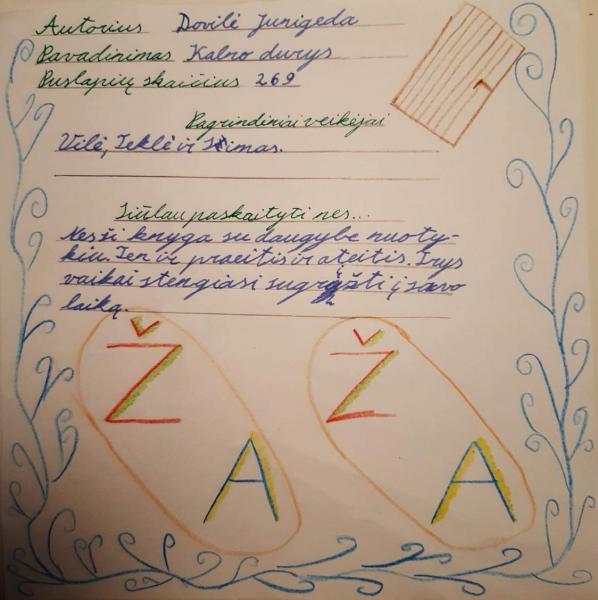 Autorius Dovilė Junigeda
Pavadinimas Kalno durys
Puslapių skaičius 269
Pagrindiniai veikėjai
Vilė, Teklė ir Simas.
Siūlau paskaityti nes...
Nes ši knyga su daugybe nuoty-
kiu. Ten ir praeitis ir ateitis. Trys
vaikai stengiasi sugrįžti į savo
laiką.
Ž Ž
A A